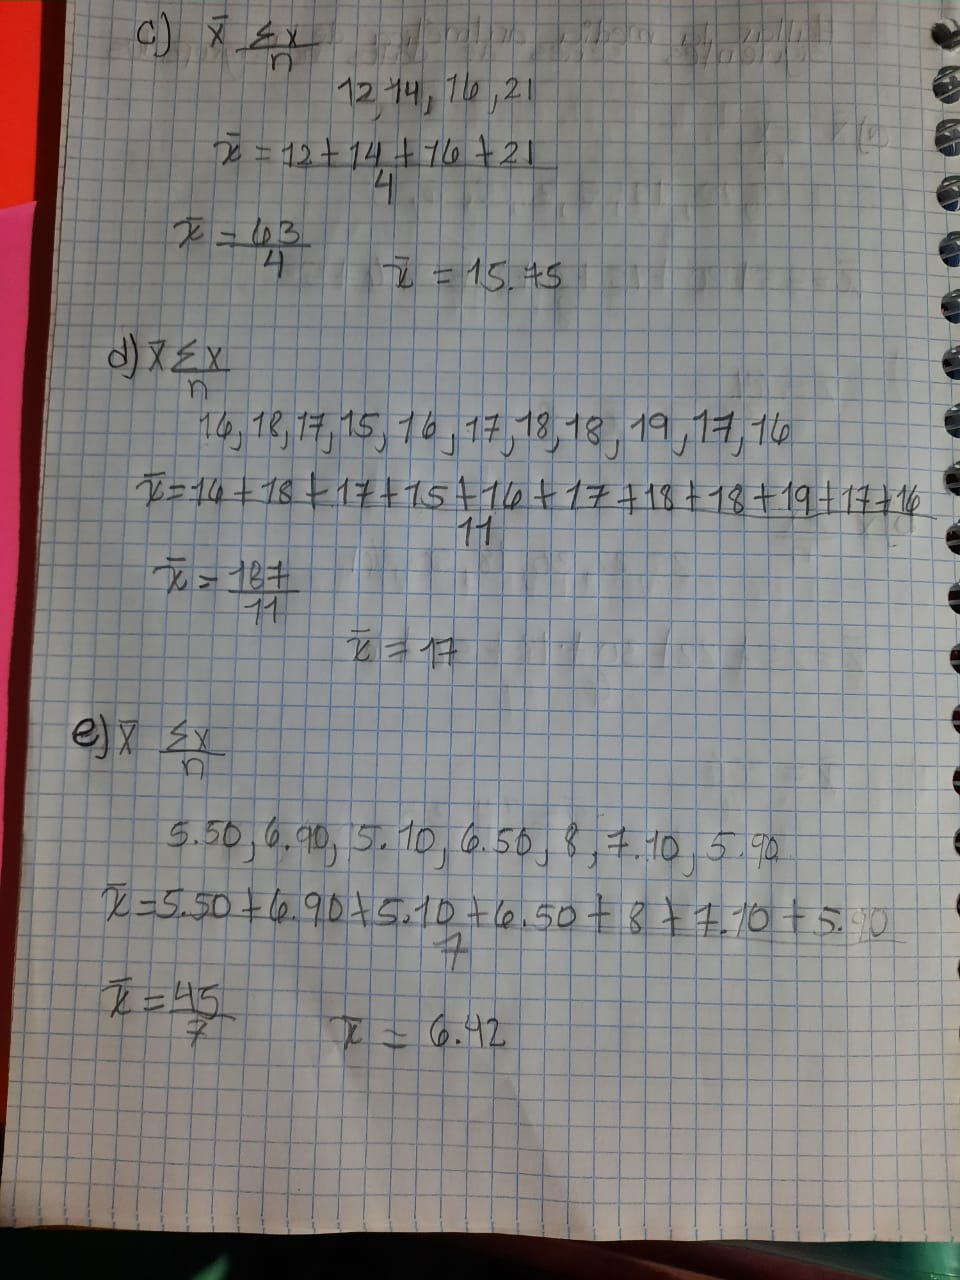 c) x̄ Σx
n
12, 14, 16, 21
x̄ = 12 + 14 + 16 + 21
4
x̄ = 63
4
x̄ = 15.75
d) x̄ Σx
n
16, 18, 17, 15, 16, 17, 18, 18, 19, 17, 16
x̄ = 16 + 18 + 17 + 15 + 16 + 17 + 18 + 18 + 19 + 17 + 16
11
x̄ = 187
11
x̄ = 17
e) x̄ Σx
n
5.50, 6.90, 5.10, 6.50, 8, 7.10, 5.90
x̄ = 5.50 + 6.90 + 5.10 + 6.50 + 8 + 7.10 + 5.90
7
x̄ = 45
7
x̄ = 6.42